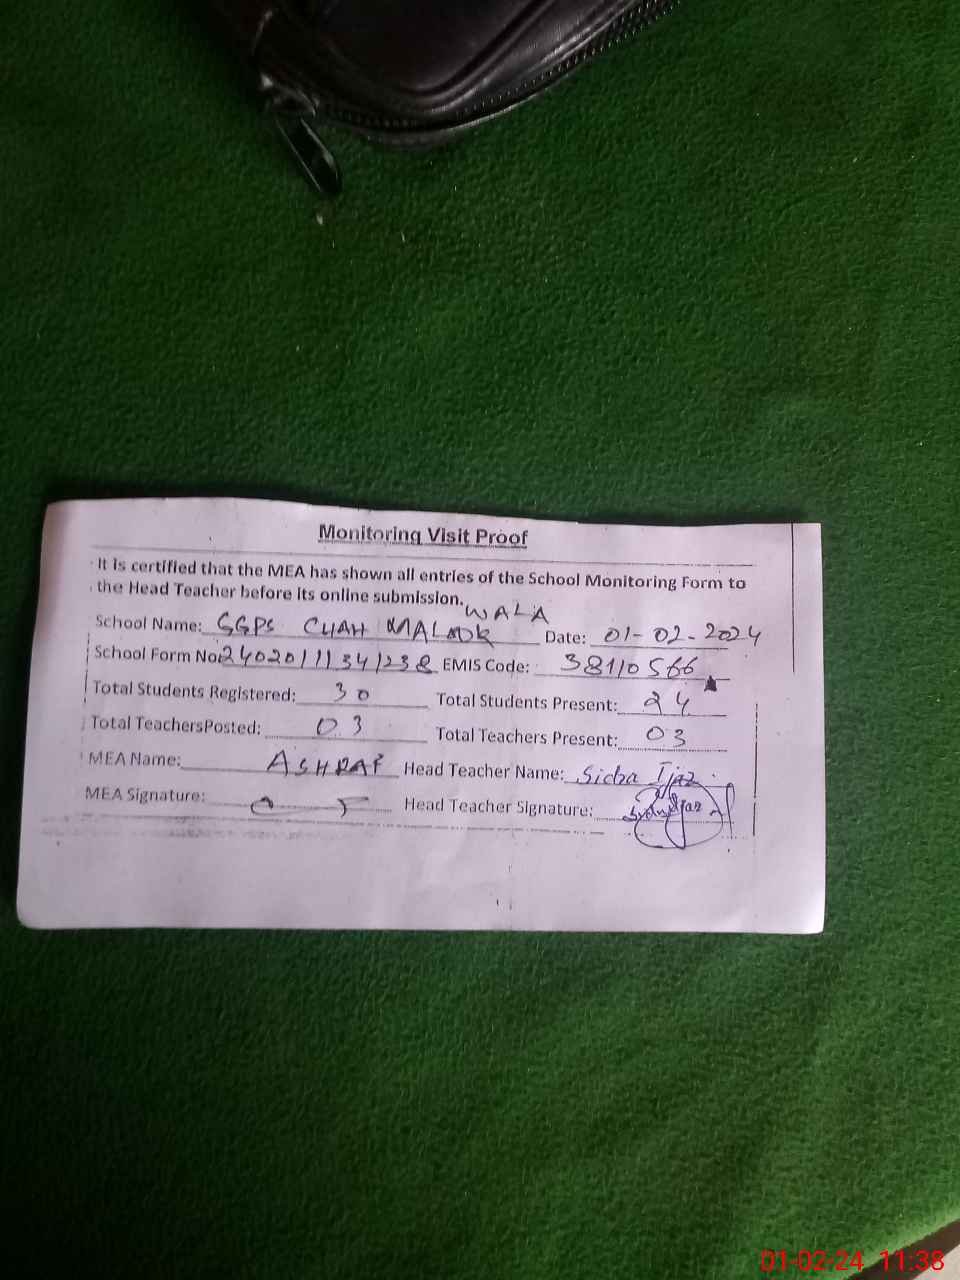 Monitoring Visit Proof
It is certified that the MEA has shown all entries of the School Monitoring Form to
the Head Teacher before its online submission.
WALA
School Name: GGPS CHAH MALOOK Date: 01-02-2024
School Form No: 24020111341238 EMIS Code: 38110566
Total Students Registered: 30 Total Students Present: 24
Total TeachersPosted: 03 Total Teachers Present: 03
MEA Name: ASHRAF Head Teacher Name: Sidra Ijaz
MEA Signature: Head Teacher Signature: Sidra Ijaz
01-02-24 11:38